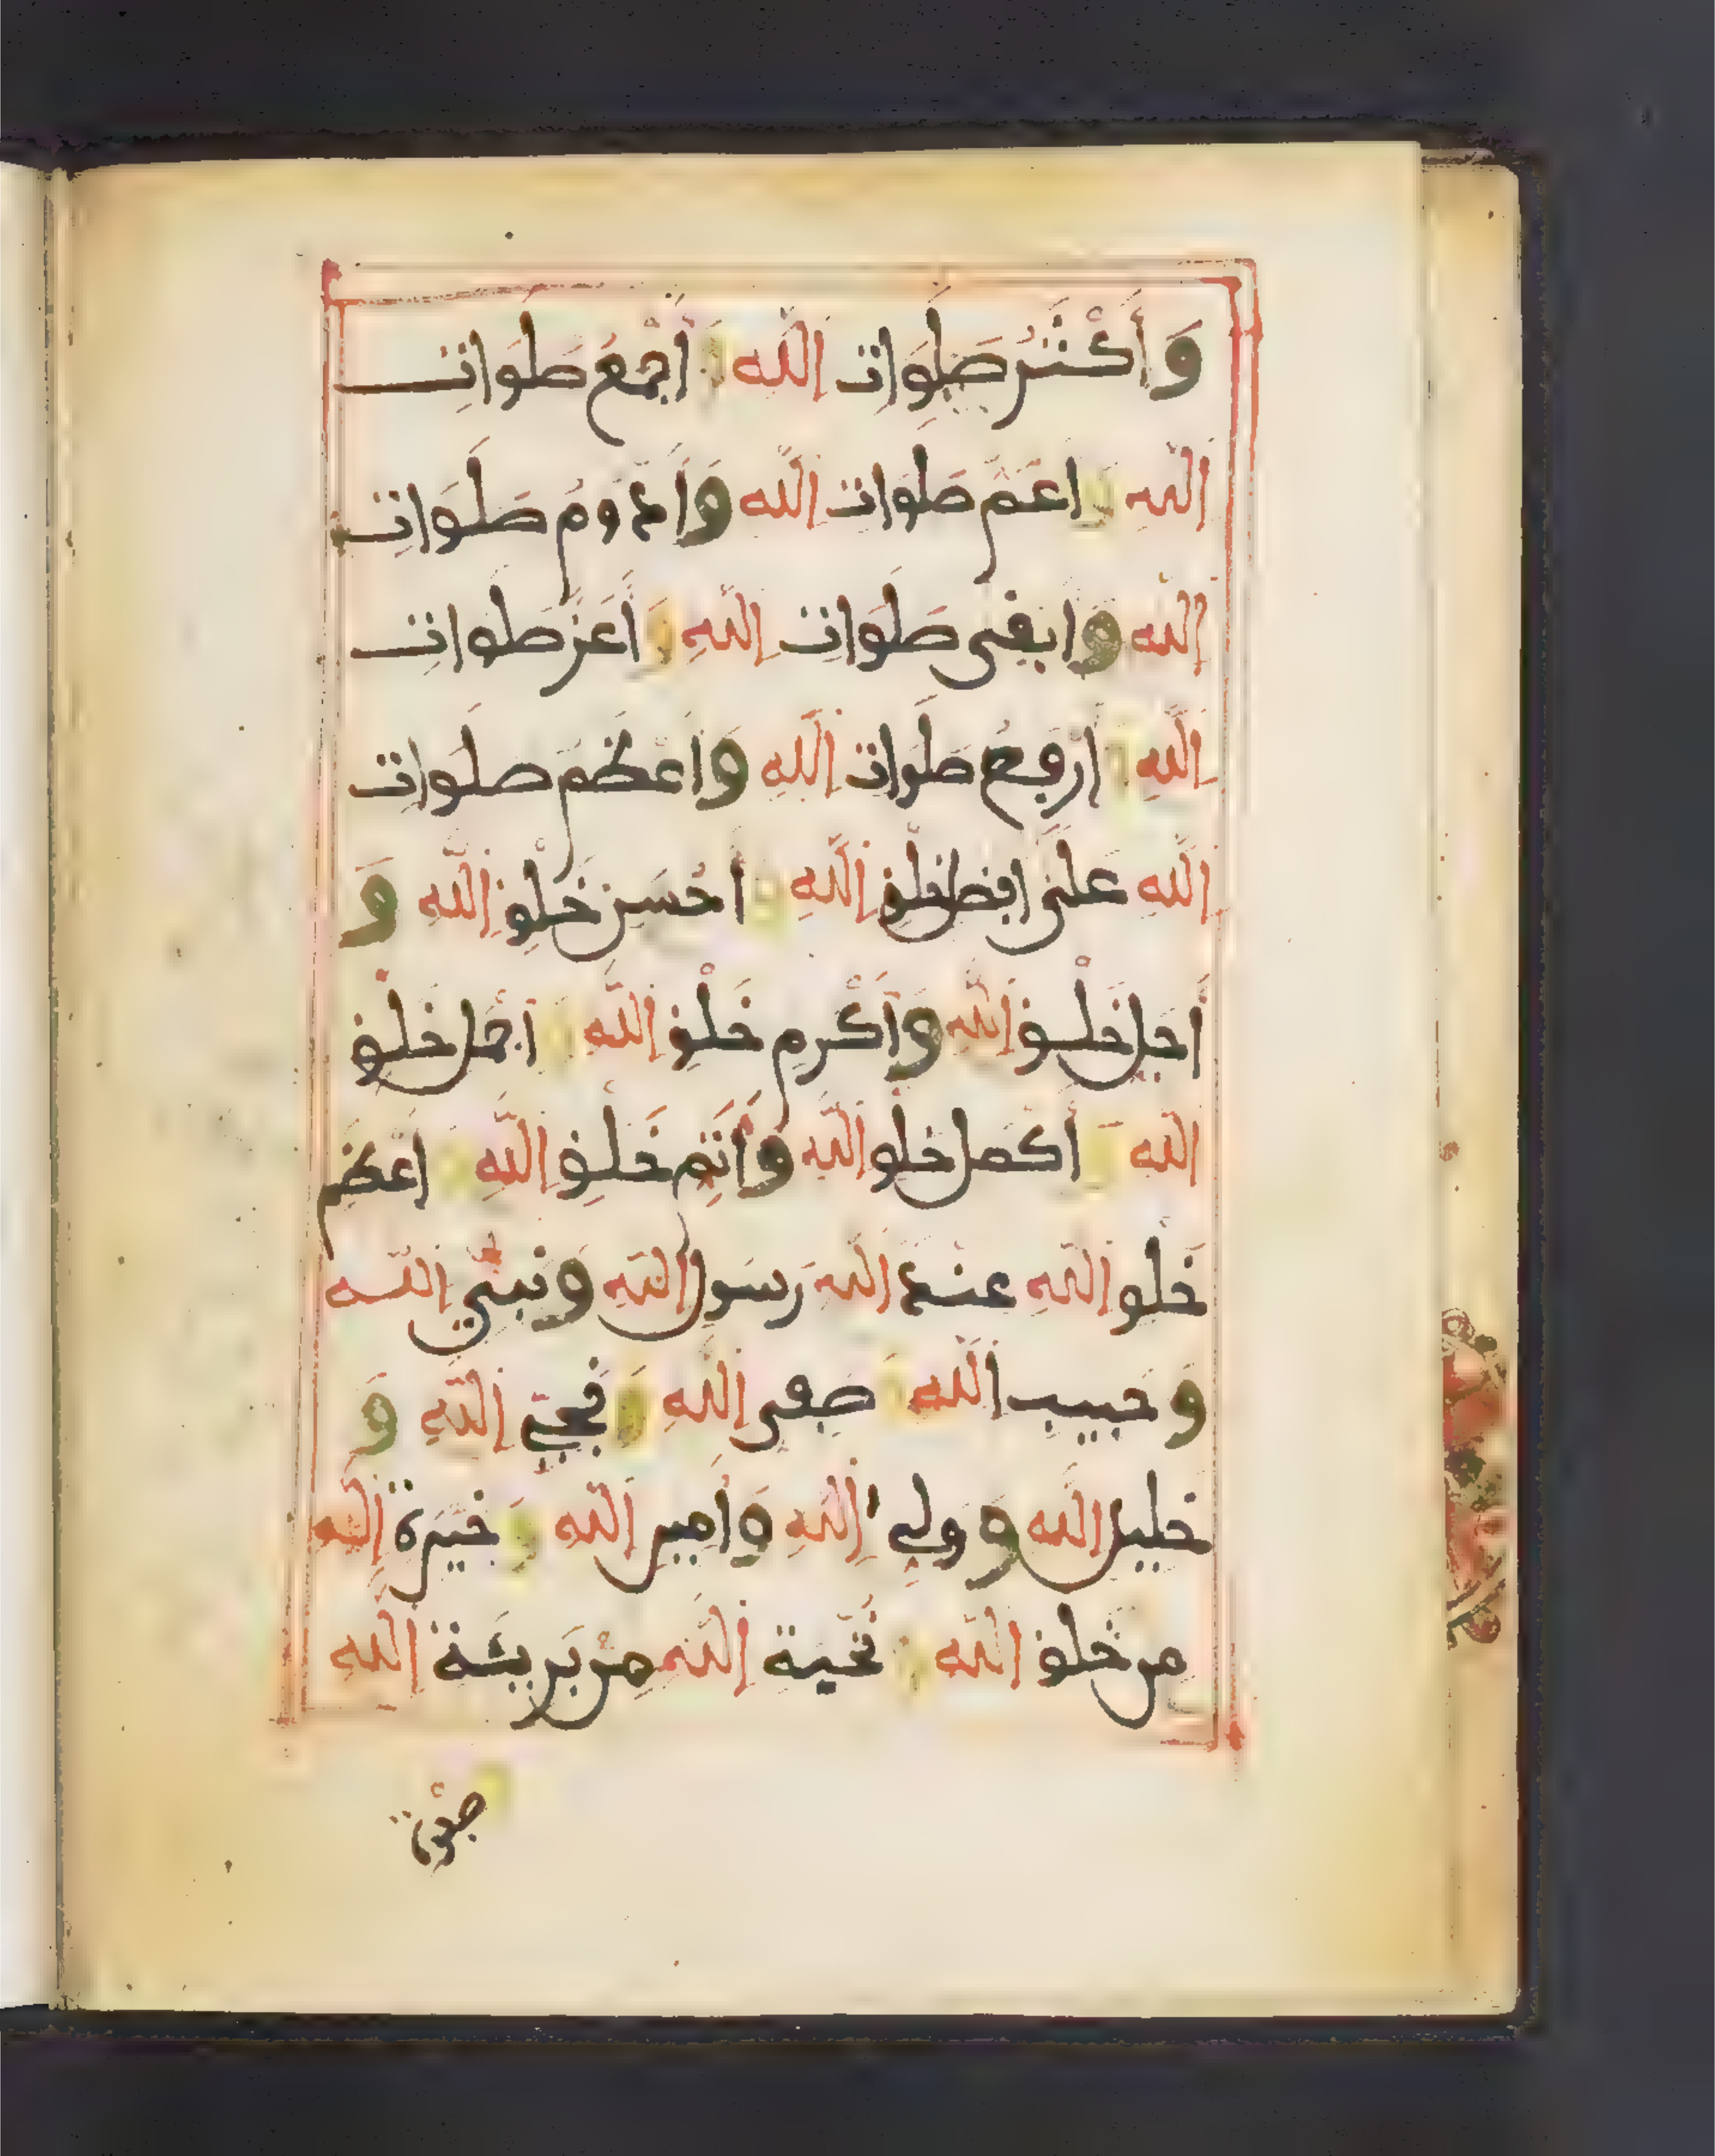 وَأَكْثَرُ صَلَوَاتِ اللَّهِ وَأَجْمَعُ صَلَوَاتِ
اللَّهِ وَأَعَمُّ صَلَوَاتِ اللَّهِ وَأَدْوَمُ صَلَوَاتِ
اللَّهِ وَأَبْقَى صَلَوَاتِ اللَّهِ وَأَعَزُّ صَلَوَاتِ
اللَّهِ وَأَرْفَعُ صَلَوَاتِ اللَّهِ وَأَعْظَمُ صَلَوَاتِ
اللَّهِ عَلَى أَفْضَلِ خَلْقِ اللَّهِ وَأَحْسَنِ خَلْقِ اللَّهِ وَ
أَجَلِّ خَلْقِ اللَّهِ وَأَكْرَمِ خَلْقِ اللَّهِ وَأَجْمَلِ خَلْقِ
اللَّهِ وَأَكْمَلِ خَلْقِ اللَّهِ وَأَتَمِّ خَلْقِ اللَّهِ وَأَعْظَمِ
خَلْقِ اللَّهِ عِنْدَ اللَّهِ رَسُولِ اللَّهِ وَنَبِيِّ اللَّهِ
وَحَبِيبِ اللَّهِ وَصَفِيِّ اللَّهِ وَنَجِيِّ اللَّهِ وَ
خَلِيلِ اللَّهِ وَوَلِيِّ اللَّهِ وَأَمِينِ اللَّهِ وَخِيرَةِ اللَّهِ
مِنْ خَلْقِ اللَّهِ وَنُخْبَةِ اللَّهِ مِنْ بَرِيئَةِ اللَّهِ
وصفوة